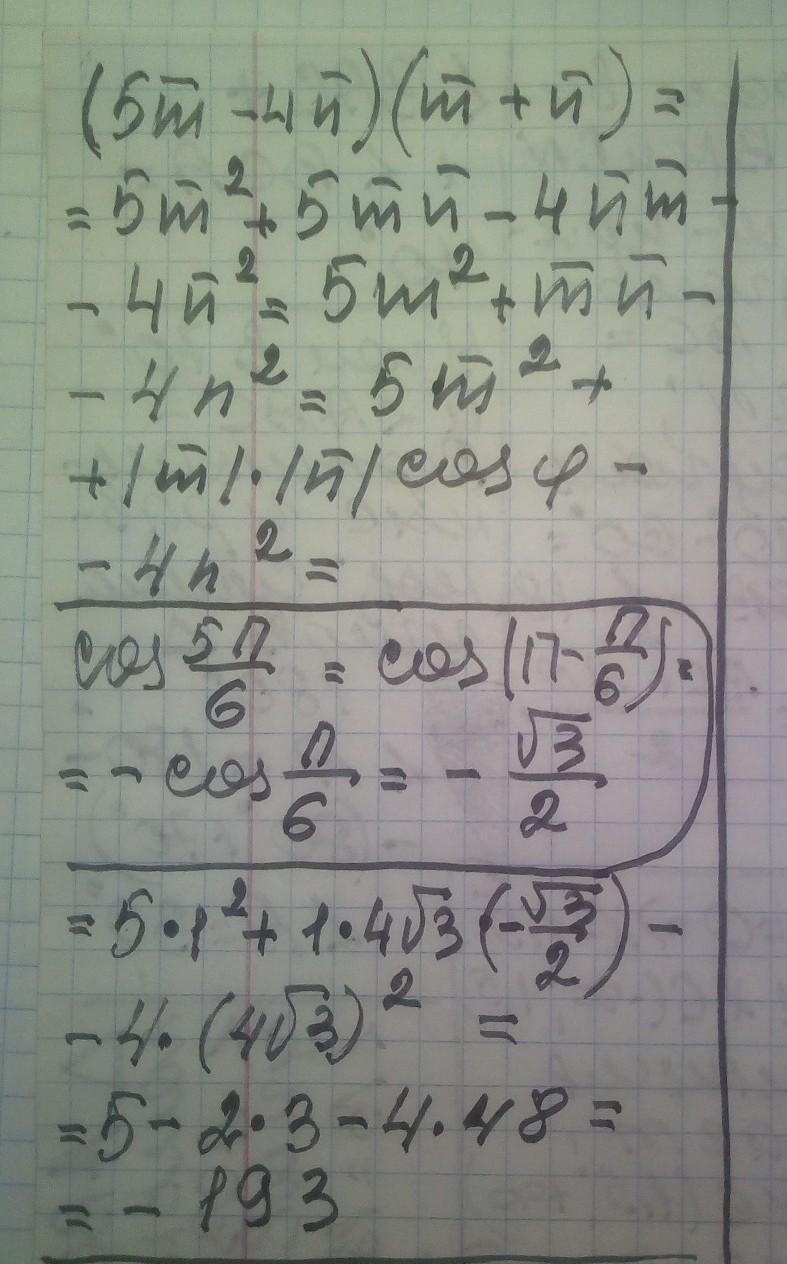 (5m̄ - 4n̄)(m̄ + n̄) =
= 5m̄² + 5m̄n̄ - 4n̄m̄ -
- 4n̄² = 5m² + m̄n̄ -
- 4n² = 5m̄² +
+ |m̄|·|n̄| cos φ -
- 4n² =
cos 5π/6 = cos(π - π/6) =
= - cos π/6 = - √3/2
= 5·1² + 1·4√3·(-√3/2) -
- 4·(4√3)² =
= 5 - 2·3 - 4·48 =
= - 193